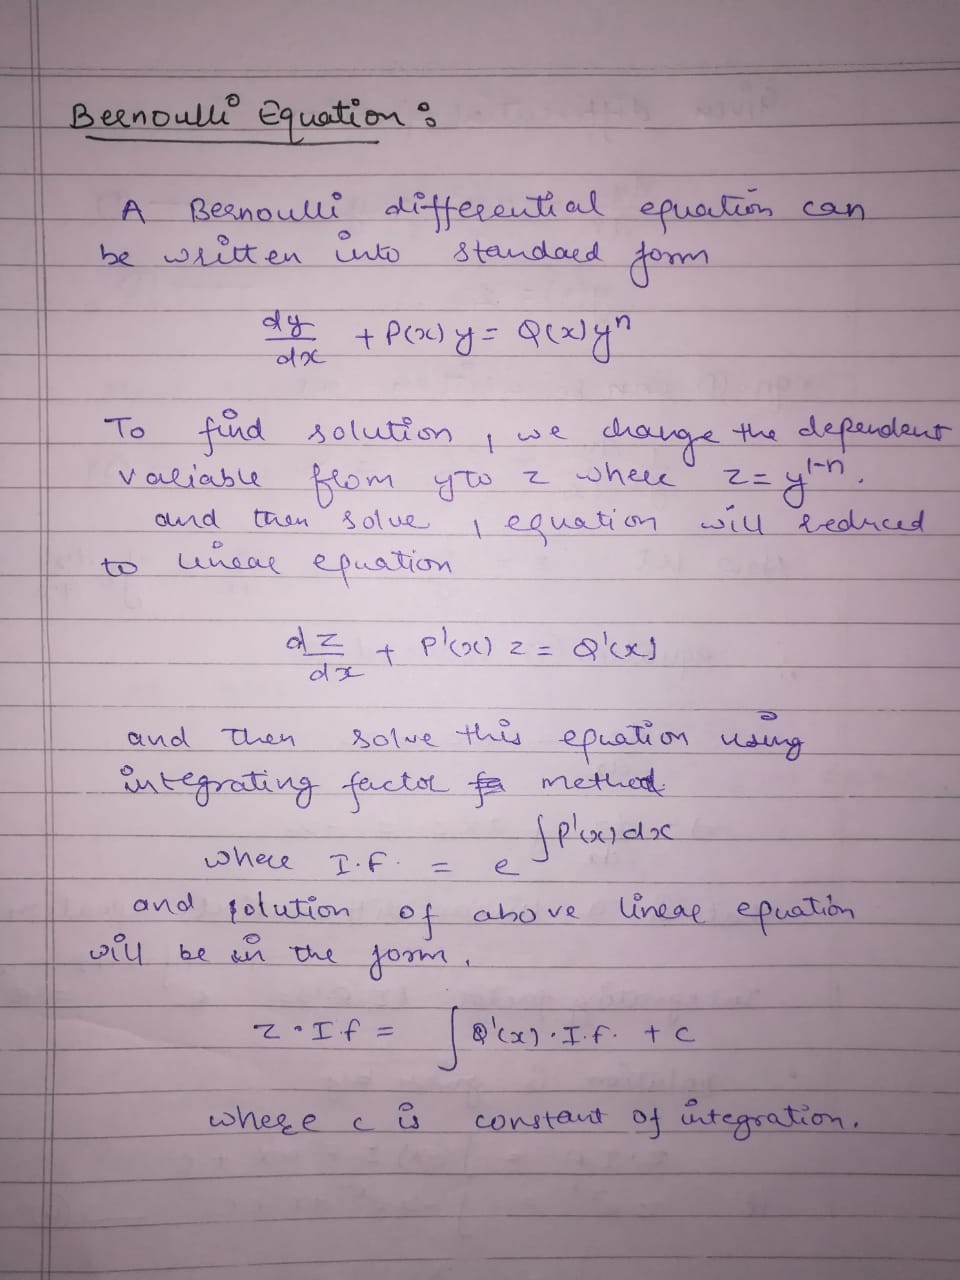 Bernoulli Equation :
A Bernoulli differential equation can
be written into standard form
dy/dx + P(x) y = Q(x) yⁿ
To find solution, we change the dependent
variable from y to z where z = y¹⁻ⁿ.
and then solve, equation will reduced
to linear equation
dz/dx + P'(x) z = Q'(x)
and then solve this equation using
integrating factor method
where I.F. = e^∫P'(x)dx
and solution of above linear equation
will be in the form,
z · I.f = ∫ Q'(x) · I.f. + c
where c is constant of integration.